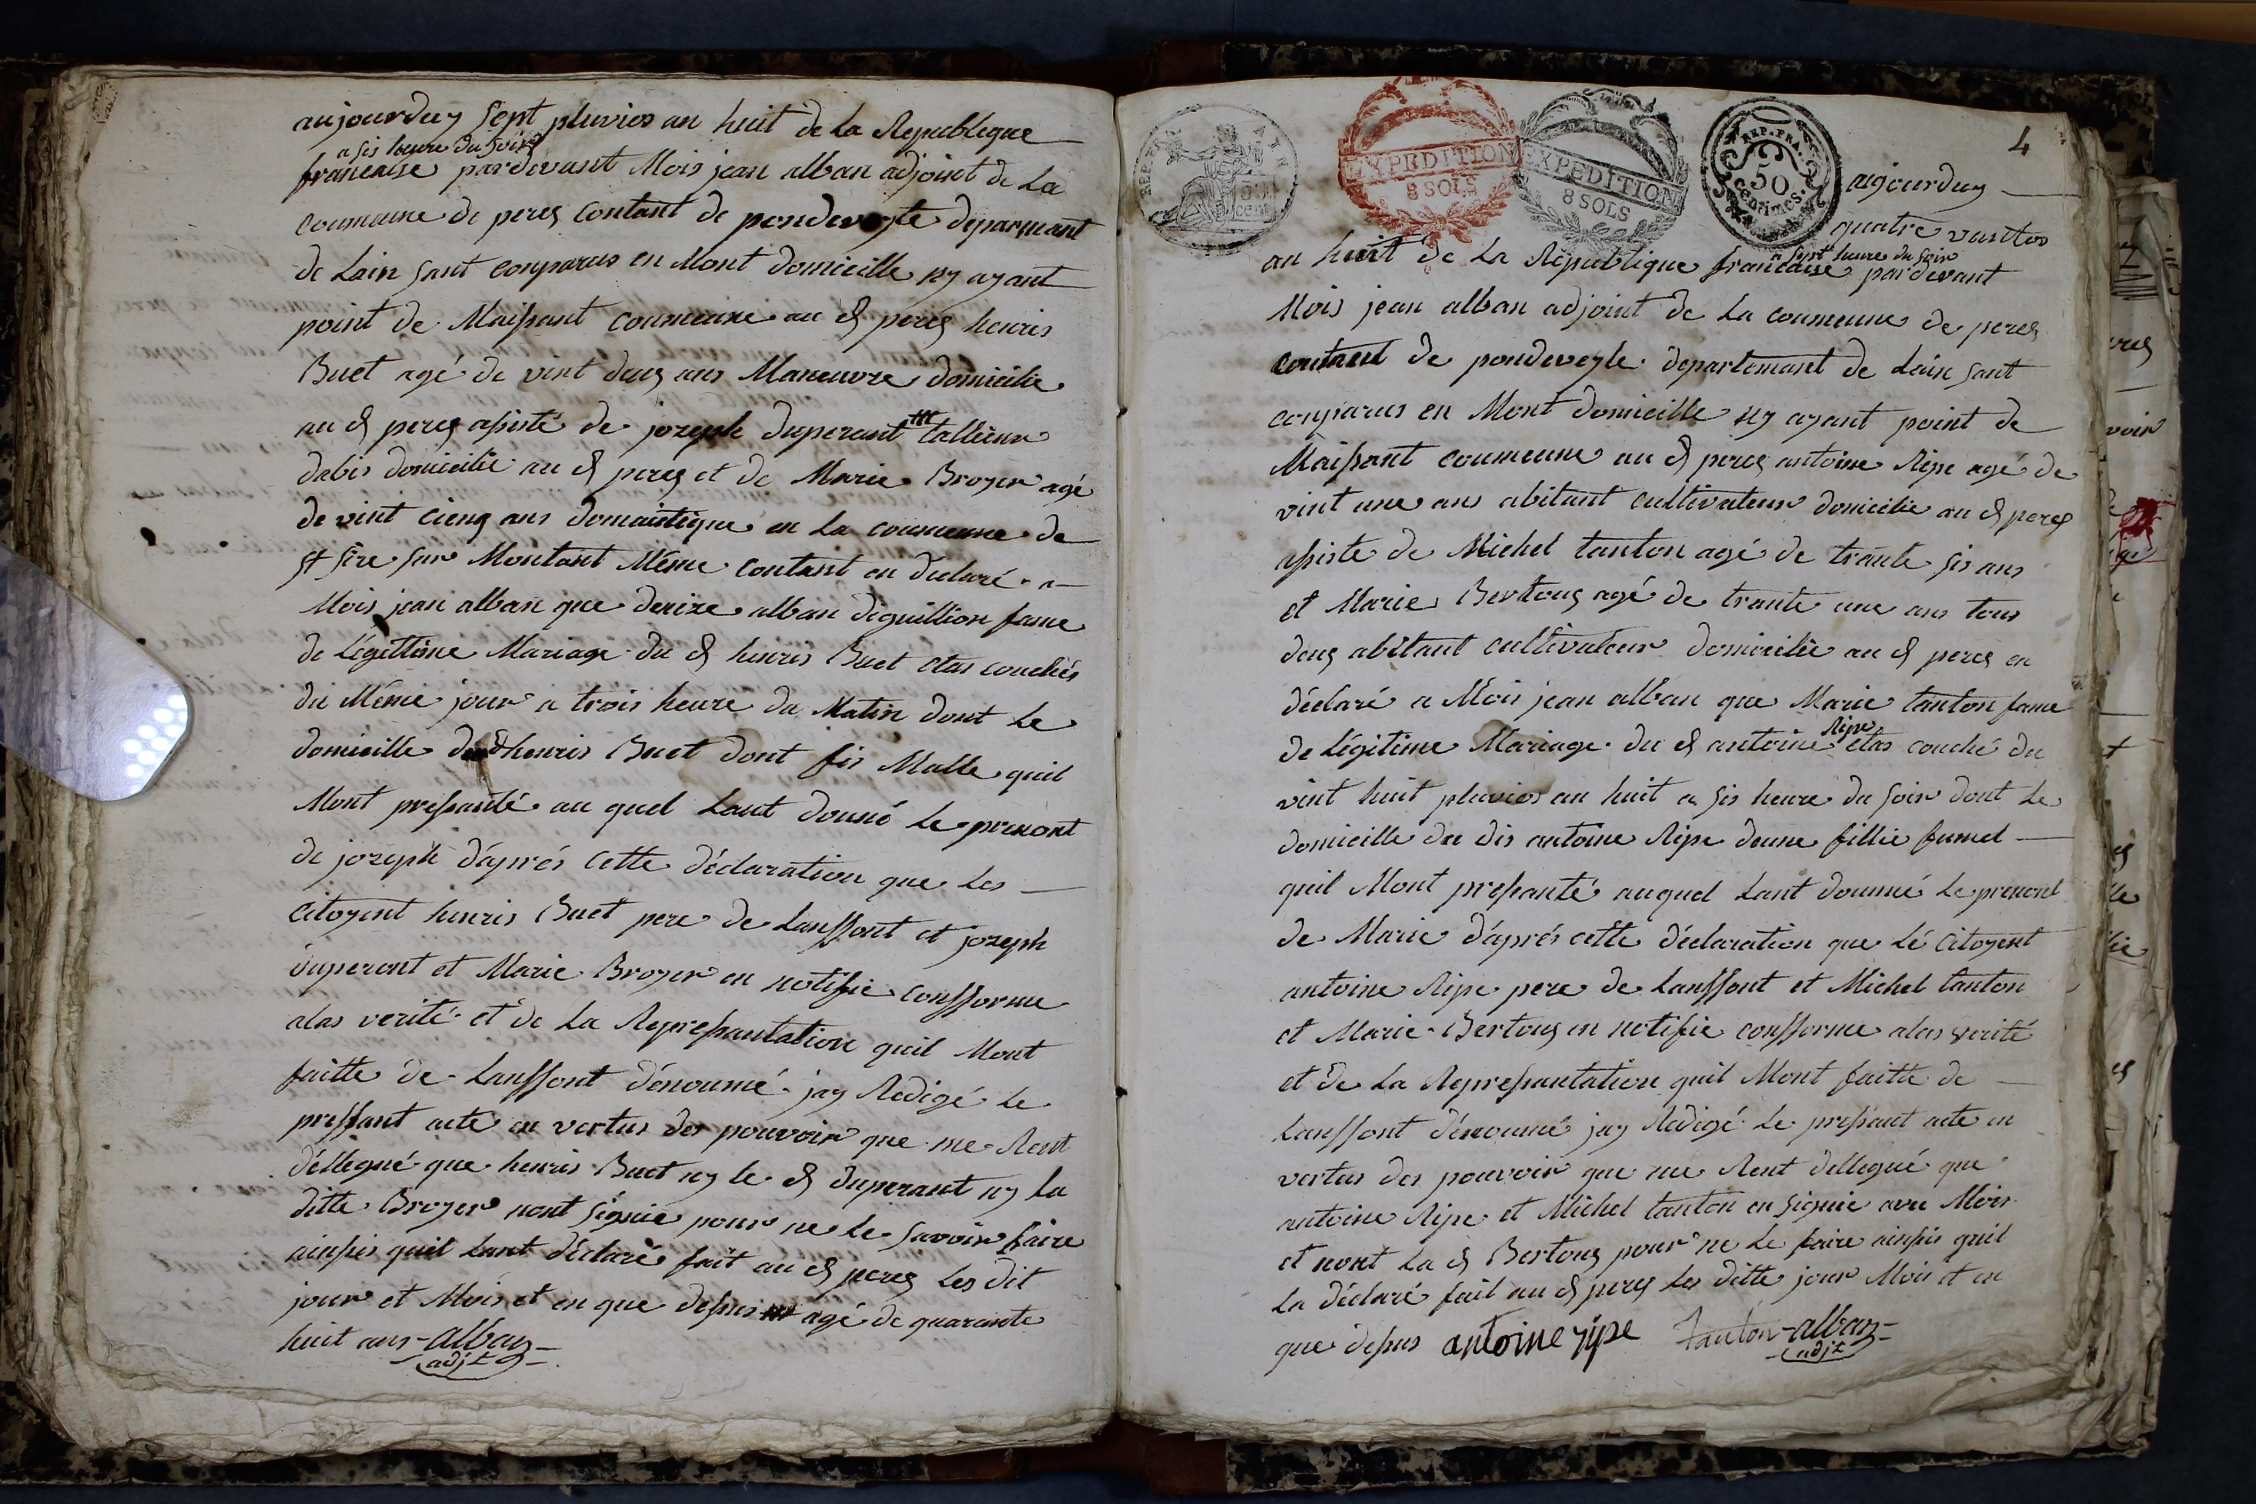 aujourduy sept pluvios an huit de la Republique
a sis heure du soir
francaise pardevant Mois jean alban adjoint de La
coumune de peres Contant de pondeveyle deparmant
de Lain sant conparus en Mont domicille ny ayant
point de Maissant coumeune au d peres henris
Buet agé de vint deus ans Maneuvre domicilie
au d peres assisté de jozeph duperant tallieur
dabis domicilie au d peres et de Marie Broyer agé
de vint cienq ans domaistique en La coumeune de
st sire sur Montant Méme Contant en declaré a
Mois jean alban que denize alban deguillion fame
de Légittime Mariage du d henris Buet etas couchés
du Méme jour a trois heure du Matin dont Le
domicille dud henris Buet dont fis Malle quil
Mont pressanté au quel Lont donné Le prenont
de jozeph d'aprés Cette déclaration que Les
Citoyent henris Buet pere de Lanffont et jozeph
duperant et Marie Broyer en notifie confforme
alas verité et de La Represantation quil Mont
faitte de Lanffont dénoumé jay Redigé Le
pressant acte en vertus des pouvoir que me Sont
déllegué que henris Buet ny le d duperant ny la
ditte Broyer nont signie pour ne Le savoir faire
ainsis quil Lont déclaré fait au d peres Les dit
jour et Mois et en que dessus agé de quarante
huit ans alban
adjt
4
REP. FRA.
50
centimes
EXPEDITION
8 SOLS
EXPEDITION
8 SOLS
aujourduy
quatre vantos
a sept heure du soir
an huit de La République francaise pardevant
Mois jean alban adjoint de La coumeune de peres
contant de pondeveyle departemant de Lain sant
conparus en Mont domicille ny ayant point de
Maissant coumeune au d peres antoine Ripe agé de
vint une ans abitant cultivateur domicilie au d peres
assiste de Michel tanton agé de trante sis ans
et Marie Bertous agé de trante une ans tous
deus abitant cultivateur domicilie au d peres en
déclaré a Mois jean alban que Marie tanton fame
Ripe
de Légitime Mariage du d antoine etas couché du
vint huit pluvios an huit a sis heure du soir dont Le
domicille du dis antoine Ripe doune fillie fumel
quil Mont pressanté auquel Lant doumé Le prenont
de Marie d'aprés cette déclaration que Lé Citoyent
antoine Ripe pere de Lanffont et Michel tanton
et Marie Bertous en notifie confforme alas verité
et de La Represantation quil Mont faitte de
Lanffont dénoumé jay Redigé Le pressant acte en
vertus des pouvoir que me Sont dellegué que
antoine Ripe et Michel tanton en signie avec Mois
et nont La d Bertous pour ne Le faire ainsis quil
La déclaré fait au d peres Les ditte jour Mois et en
que dessus antoine ripe tanton alban
adjt